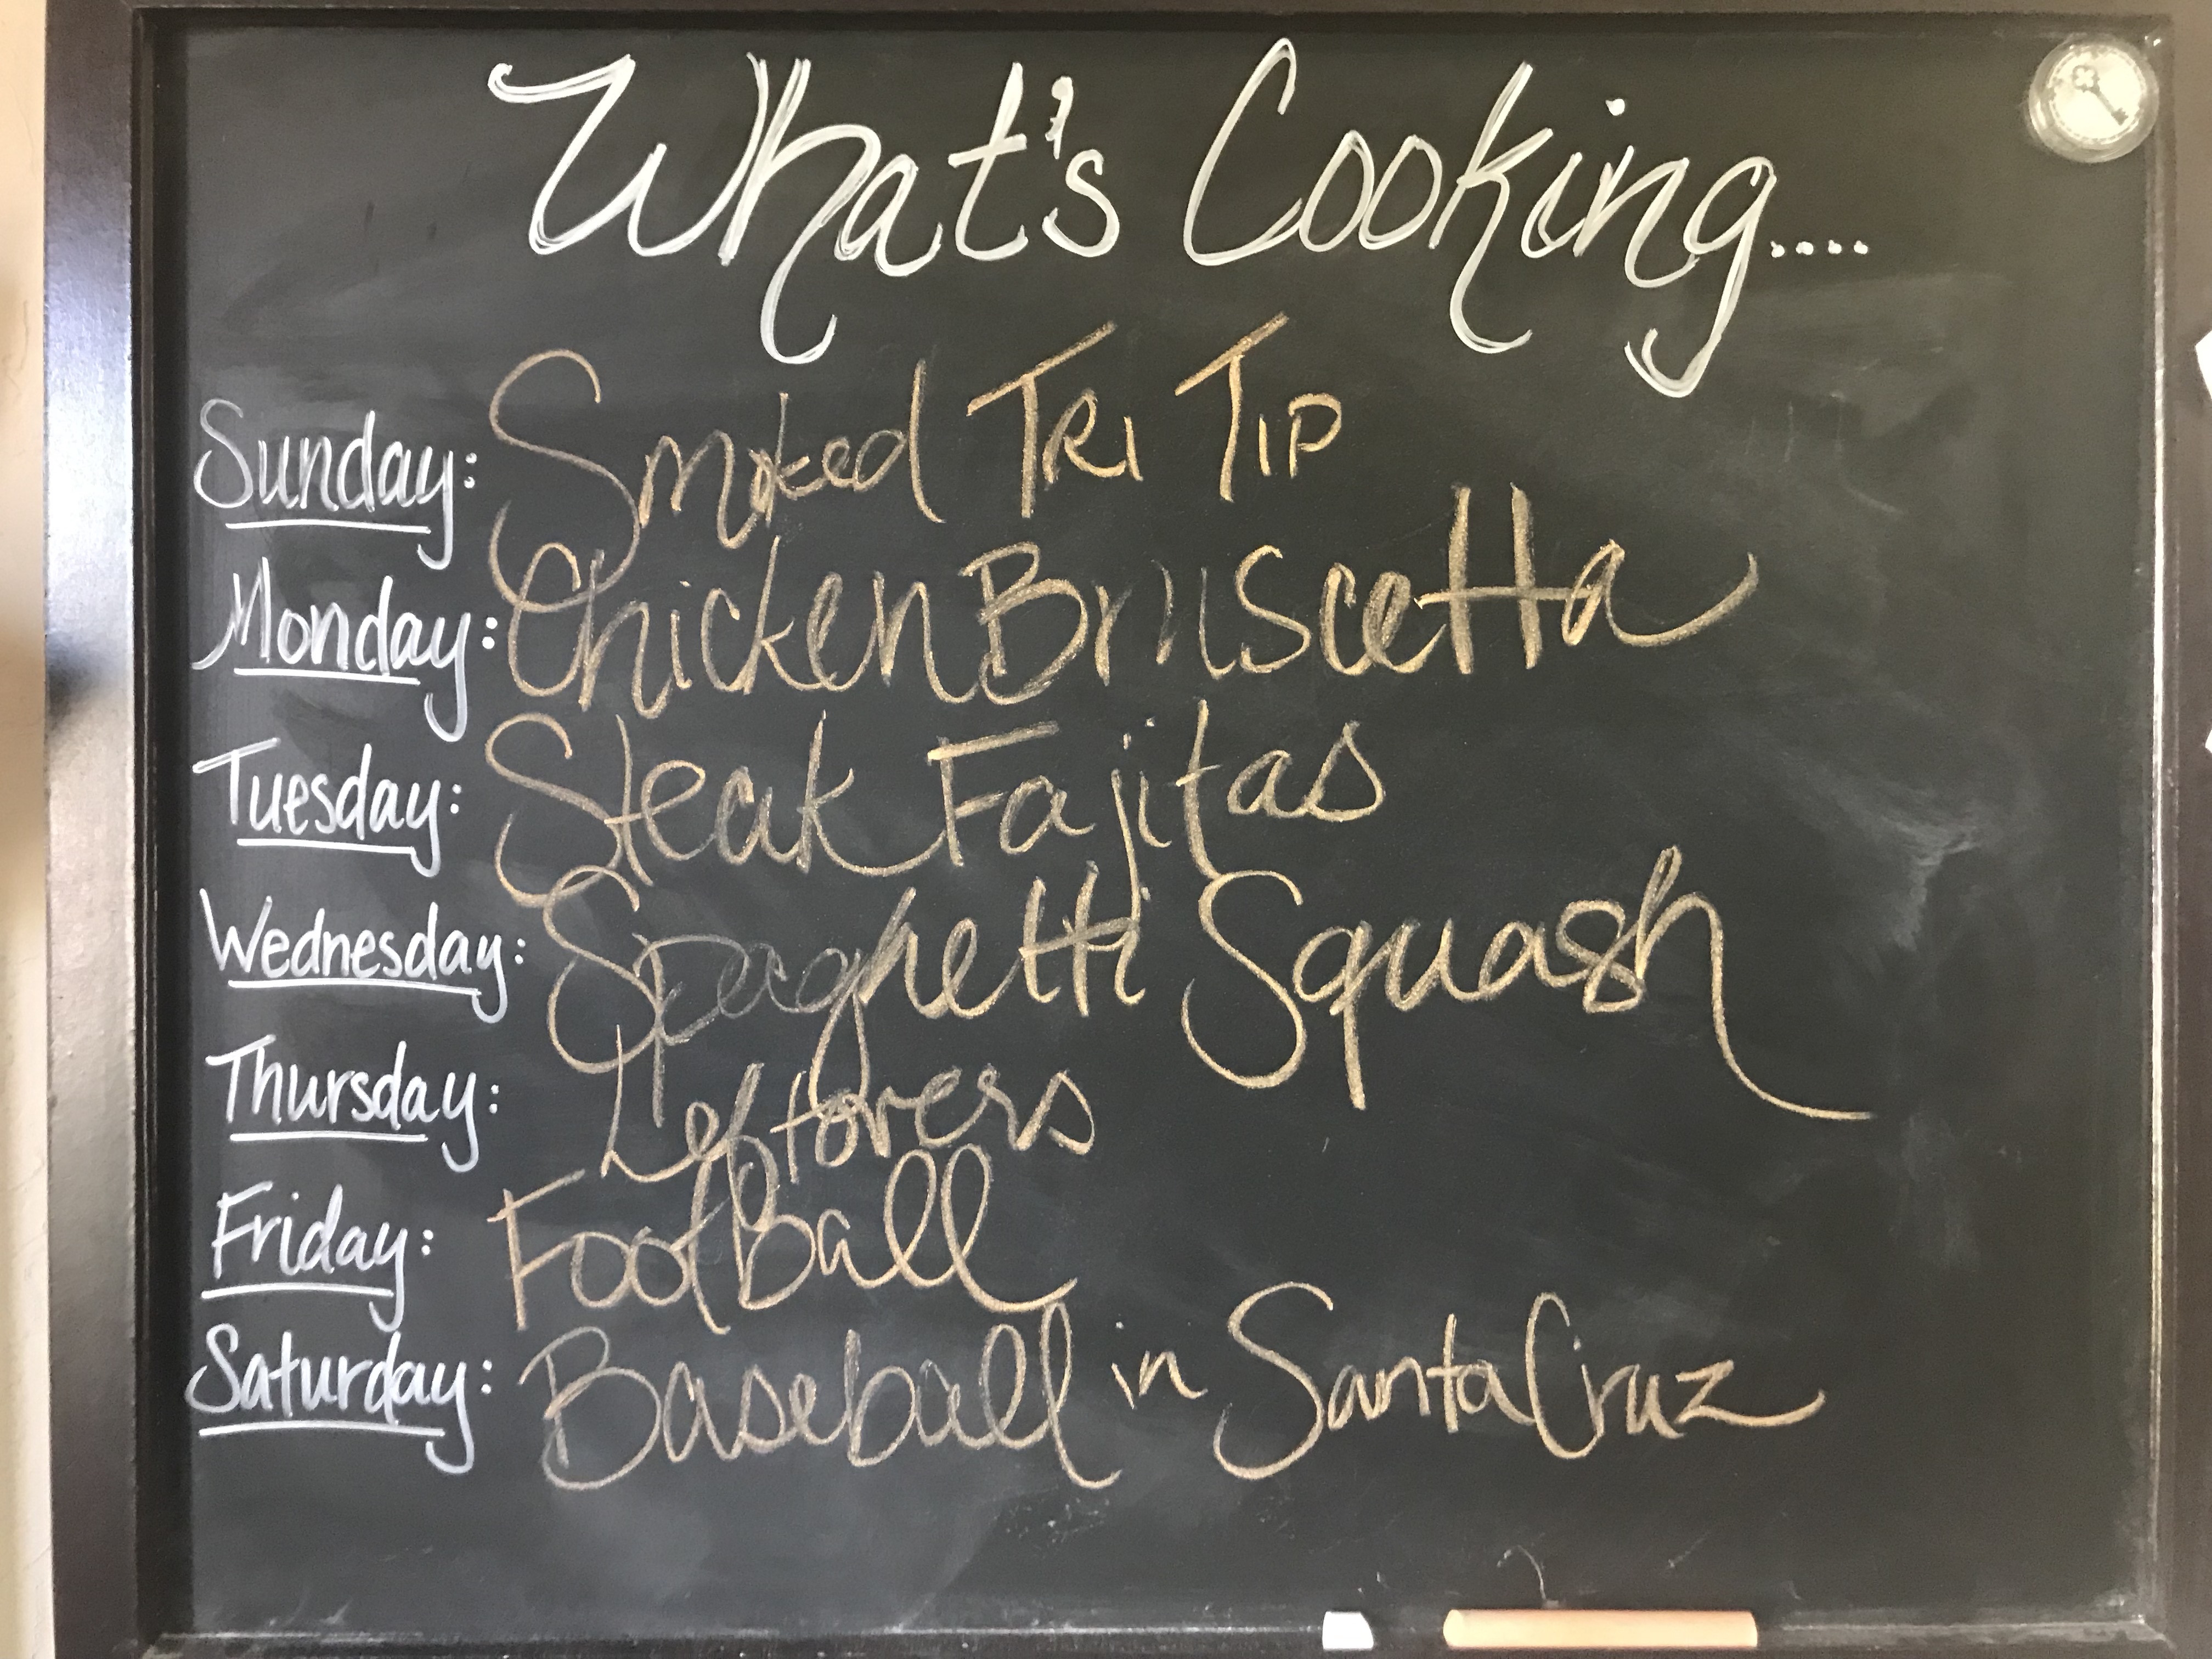 What's Cooking....
Sunday: Smoked TRI TIP
Monday: Chicken Bruscetta
Tuesday: Steak Fajitas
Wednesday: Spaghetti Squash
Thursday: Leftovers
Friday: FootBall
Saturday: Baseball in Santa Cruz